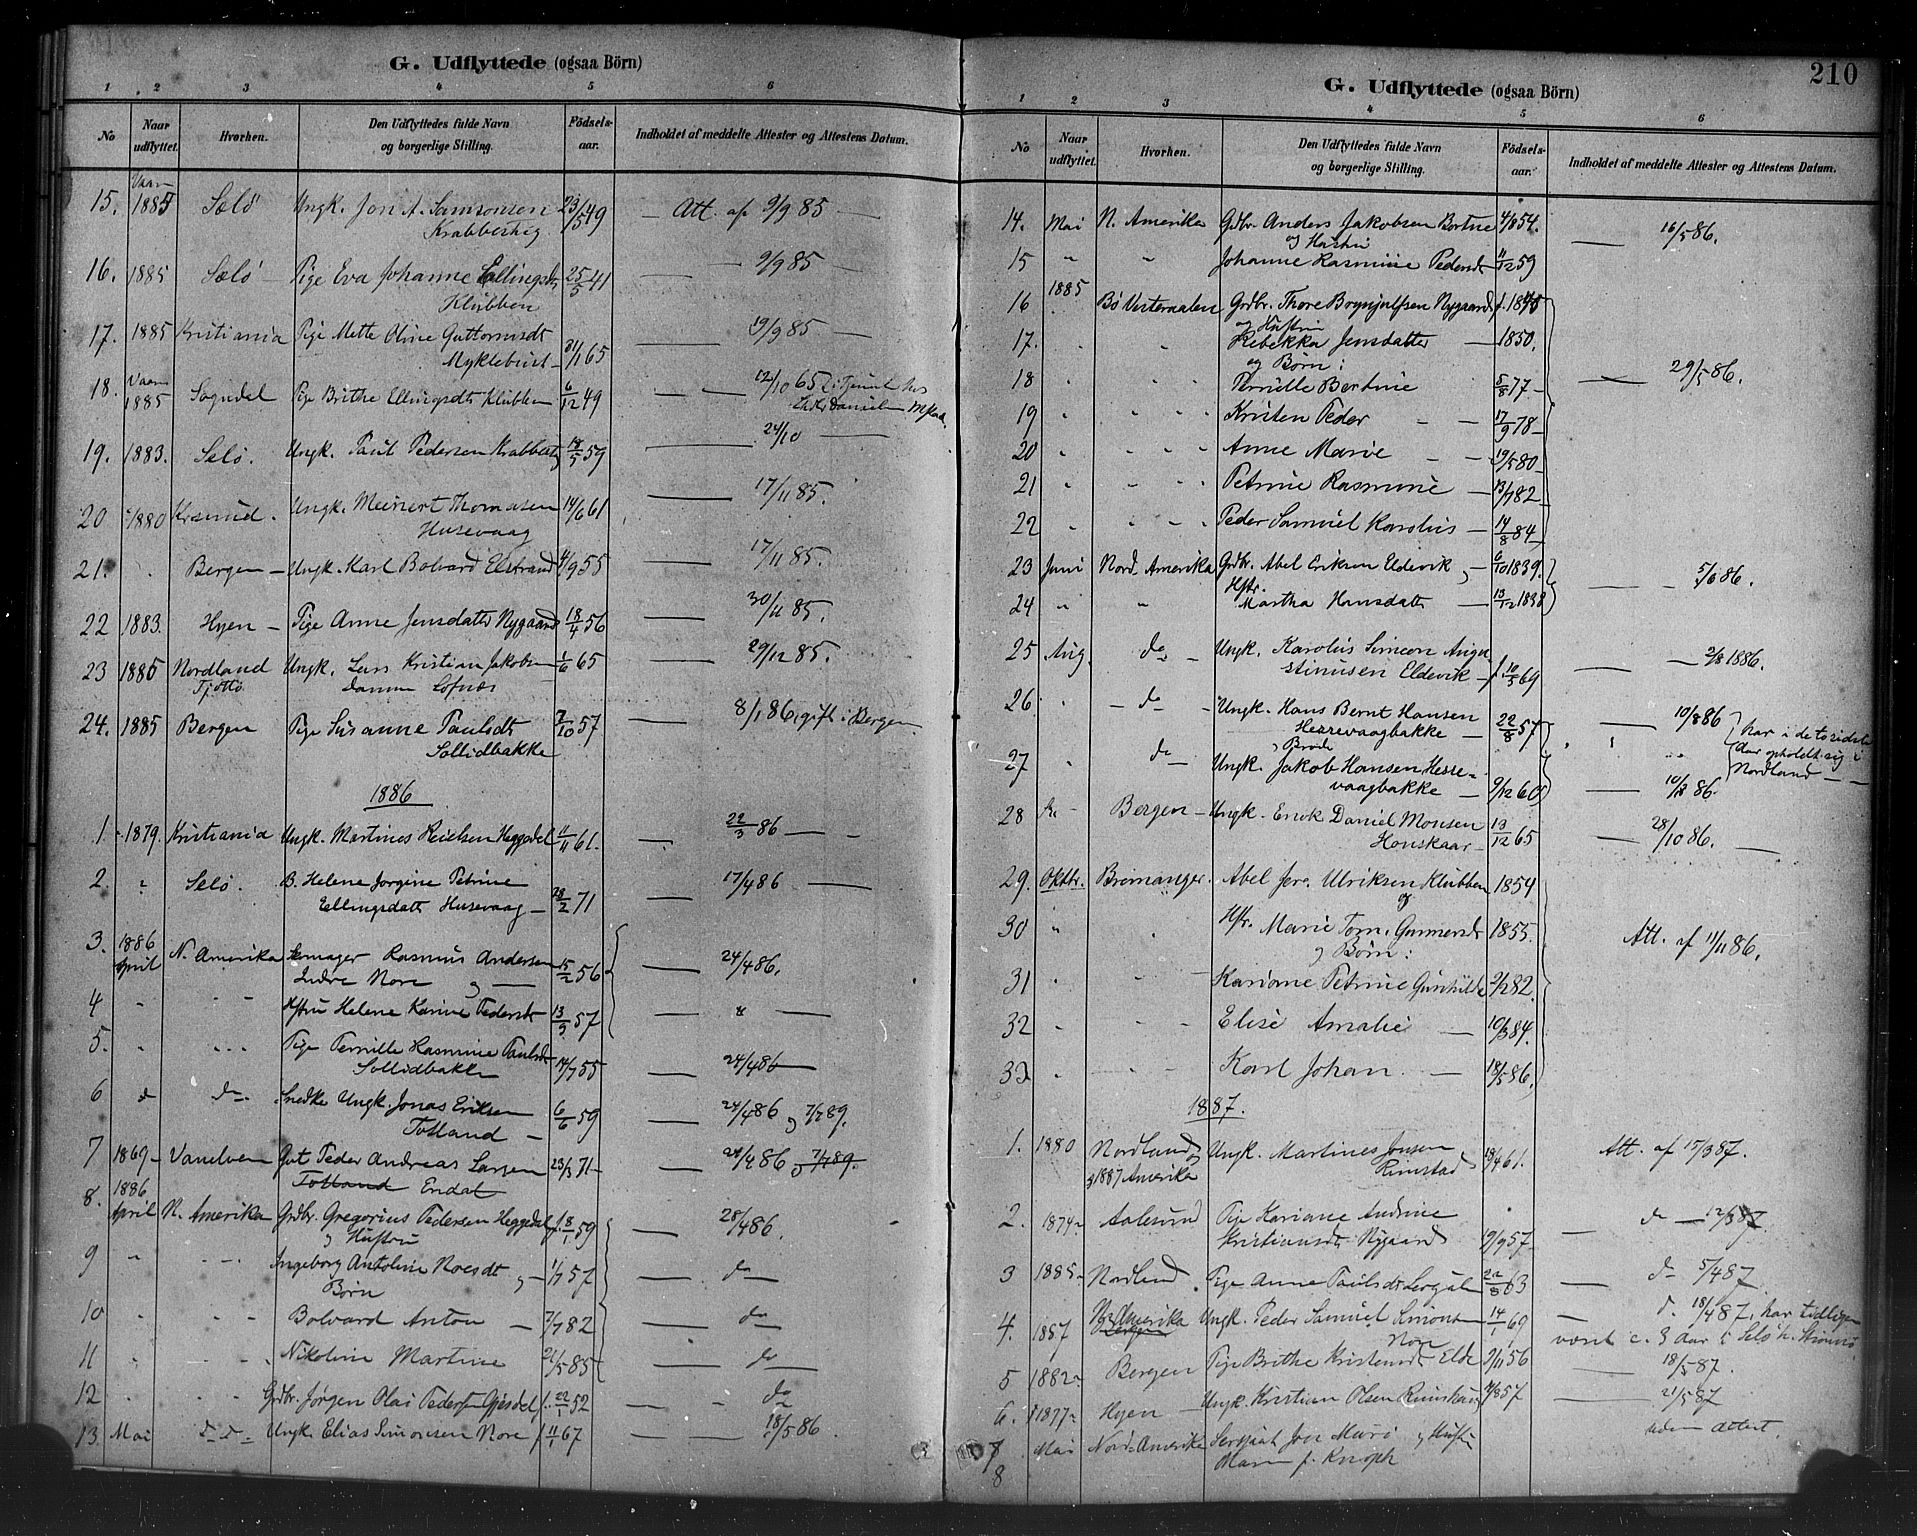 G. Udflyttede (ogsaa Börn)
1 2 3 4 5 6
No Naar udflyttet. Hvorhen. Den Udflyttedes fulde Navn og borgerlige Stilling. Födsels-aar. Indholdet af meddelte Attester og Attestens Datum.
15. Vaar 1885 Selö Ungk. Jon A. Samsonsen 23/5 49 — Att. af 9/9 85 —
Krabbestig
16. 1885 Selö — Pige Eva Johanne Ellingsdt 25/5 41 — 9/9 85 —
Klubben
17. 1885 Kristiania Pige Mette Oline Guttormsdt — 19/9 85 —
Myklebust — 31/1 65
18. Vaar 1885 Sogndal Pige Brithe Ellingsdt Klubben 6/12 49 — 12/10 65
19. 1883. Selö. Ungk. Paul Pedersen Krabbestig 14/5 59 — 24/10 —
20 1880 Krsund. Ungk. Meinert Thomasen 14/6 61 — 17/11 85.
Husevaag
21. Bergen — Ungk. Karl Bolvard Elstrand 4/9 55 — 17/11 85.
22 1883. Hyen — Pige Anne Jensdatter Nygaard 18/4 56 — 30/11 85.
23 1885 Nordland Ungk. Lars Kristian Jakobsen 1/6 65 — 29/12 85.
Tjøttö
24. 1885 Bergen Pige Susanne Paulsdt 7/10 57 — 8/1 86 gift i Bergen
Sollidbakke
1886
1. 1879. Kristiania Ungk. Martines Neielsen Heggedal 11/11 61. — 22/3 86 —
2. " Selö. B. Helene Jorgine Petrine — 17/4 86 —
Ellingsdatt Husevaag — 28/2 71
3. 1886 April N. Amerika Skomager Rasmus Andersen 15/2 56 — 24/4 86.
Indre Nore og —
4 " " " Hstru Helene Karine Pedersdt 13/3 57 — " —
5. " " " Pige Pernille Rasmine Paulsdt
Sollidbakke 14/7 55 — 24/4 86 —
6 d do Snedker Ungk. Jonas Eriksen 6/6 59 — 24/4 86 og 7/7 89.
Totland —
7 1869 — Vanelven Gut Peder Andreas Larsen 23/3 71 — 24/4 86 og 7/7 89.
Totland Endal
8. 1886 April N. Amerika Grdbr. Gregorius Pedersen Heggedal f. 8/1 59 — 28/4 86.
og Hustru
9 " " " Ingeborg Antoline Noesdt og — 1/7 57 — do —
Börn
10 " " " Bolvard Anton — 7/7 82 — do —
11 " " " Nikoline Martine 21/5 85 — do —
12 " " Grdbr. Jörgen Olai Pedersen Gjesdal f. 22/1 52 — " do
13. Mai d — d — Ungk. Elias Simonsen Nore f 11/1 67 — 18/5 86.
210
G. Udflyttede (ogsaa Börn)
1 2 3 4 5 6
No Naar udflyttet. Hvorhen. Den Udflyttedes fulde Navn og borgerlige Stilling. Födsels-aar. Indholdet af meddelte Attester og Attestens Datum.
14. Mai N. Amerika Grdbr. Anders Jakobsen Bortne 4/8 54. — 16/5 86.
og Hustru
15 " " Johanne Rasmine Pedersdt 11/12 59
16 1885 Bö Vesteraalen Grdbr. Thore Brynjulfsen Nygaard f. 1845
og Hustru
17. " " Rebekka Jensdatter — 1850.
og Börn:
18 " " Pernille Bertine 5/8 77 — — 29/5 86.
19 " " " Kristen Peder — — 17/9 78 —
20 " " " Anne Marie — — 19/5 80 —
21 " " " Petrine Rasmine — 13/7 82 —
22 " " " Peder Samuel Karolus — 14/8 84 —
23 Juni Nord. Amerika Grdbr. Abel Eriksen Eldevik og 6/10 1839. — 5/6 86.
Hstr.
24 " " Martha Hansdatt — 13/12 1838
25 Aug. do — Ungk. Karolus Simeon Augu — 2/8 1886.
stinusen Eldevik — f. 10/5 69
26 " — do — Ungk. Hans Bernt Hansen — 10/8 86 har i de to sidste
Hessevaagbakke — 22/8 57 Aar opholdt sig i
og Broder
27 " do — Ungk. Jakob Hansen Hesse- Nordland —
vaagbakke — 9/12 60 — 10/8 86.
28 Bergen — Ungk. Enok Daniel Monsen 13/12 65 — 28/10 86. —
Honskaar —
29. Oktbr. Bremanger. Abel Ulriksen Klubben 1854
og
30 " " Hstr. Marie Gunnersdt 1855. Att. af 11/11 86.
og Börn:
31 " " " Kariane Petrine Gunhilde 2/12 82.
32 " " " Elise Amalie — 10/3 84.
33 " " " Karl Johan. — 18/5 86.
1887.
1. 1880 Nordland Ungk. Martines Jonsen 13/4 61. Att. af 15/3 87.
og 1887 Amerika Rimstad
2. 1874 Aalesund Pige Kariane Andrine — do — 12/3 87
Kristiansdt Nygaard 19/9 57 —
3 1885 Nordland. Pige Anne Paulsdt 22/8 63 — do 5/4 87
4. 1887 N. Amerika Ungk. Peder Samuel Simonsen 14/1 69 — d. 18/4 87, har tidligere
Bergen Nore været c. 3 Aar i Selö
5 1882 Bergen Pige Brithe Kristensdt Elde 9/11 56 — 18/5 87.
6. 1877 Hyen — Ungk. Kristian Olsen 57 — 21/5 87
7 Mai Nord-Amerika Sersjant Jon Murö og Hustru uden Attest.
8 Maren f. Knoph